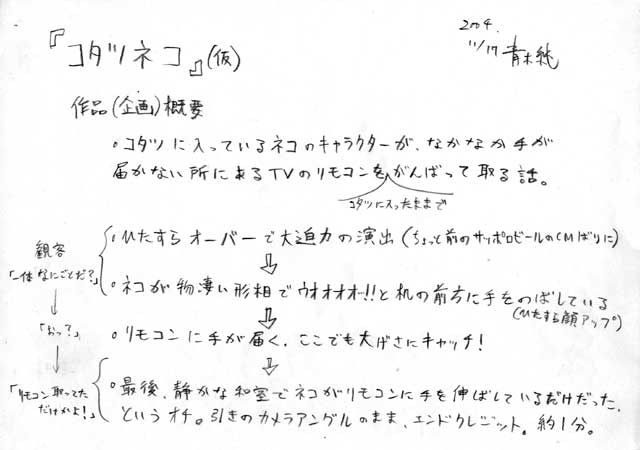 『コタツネコ』(仮)
2004.
11/17 青木純
作品(企画)概要
・コタツに入っているネコのキャラクターが、なかなか手が
届かない所にあるTVのリモコンをがんばって取る話。
コタツに入ったままで
・ひたすらオーバーで大迫力の演出(ちょっと前のサッポロビールのCMばりに)
⇩
観客
「一体なにごとだ?」
・ネコが物凄い形相でウオオオオ!!と机の前方に手をのばしている
(ひたすら顔アップ)
↓
⇩
「おっ?」
・リモコンに手が届く、ここでも大げさにキャッチ!
↓
⇩
「リモコン取ってた
だけかよ!」
・最後、静かな和室でネコがリモコンに手を伸ばしているだけだった、
というオチ。引きのカメラアングルのまま、エンドクレジット。約1分。